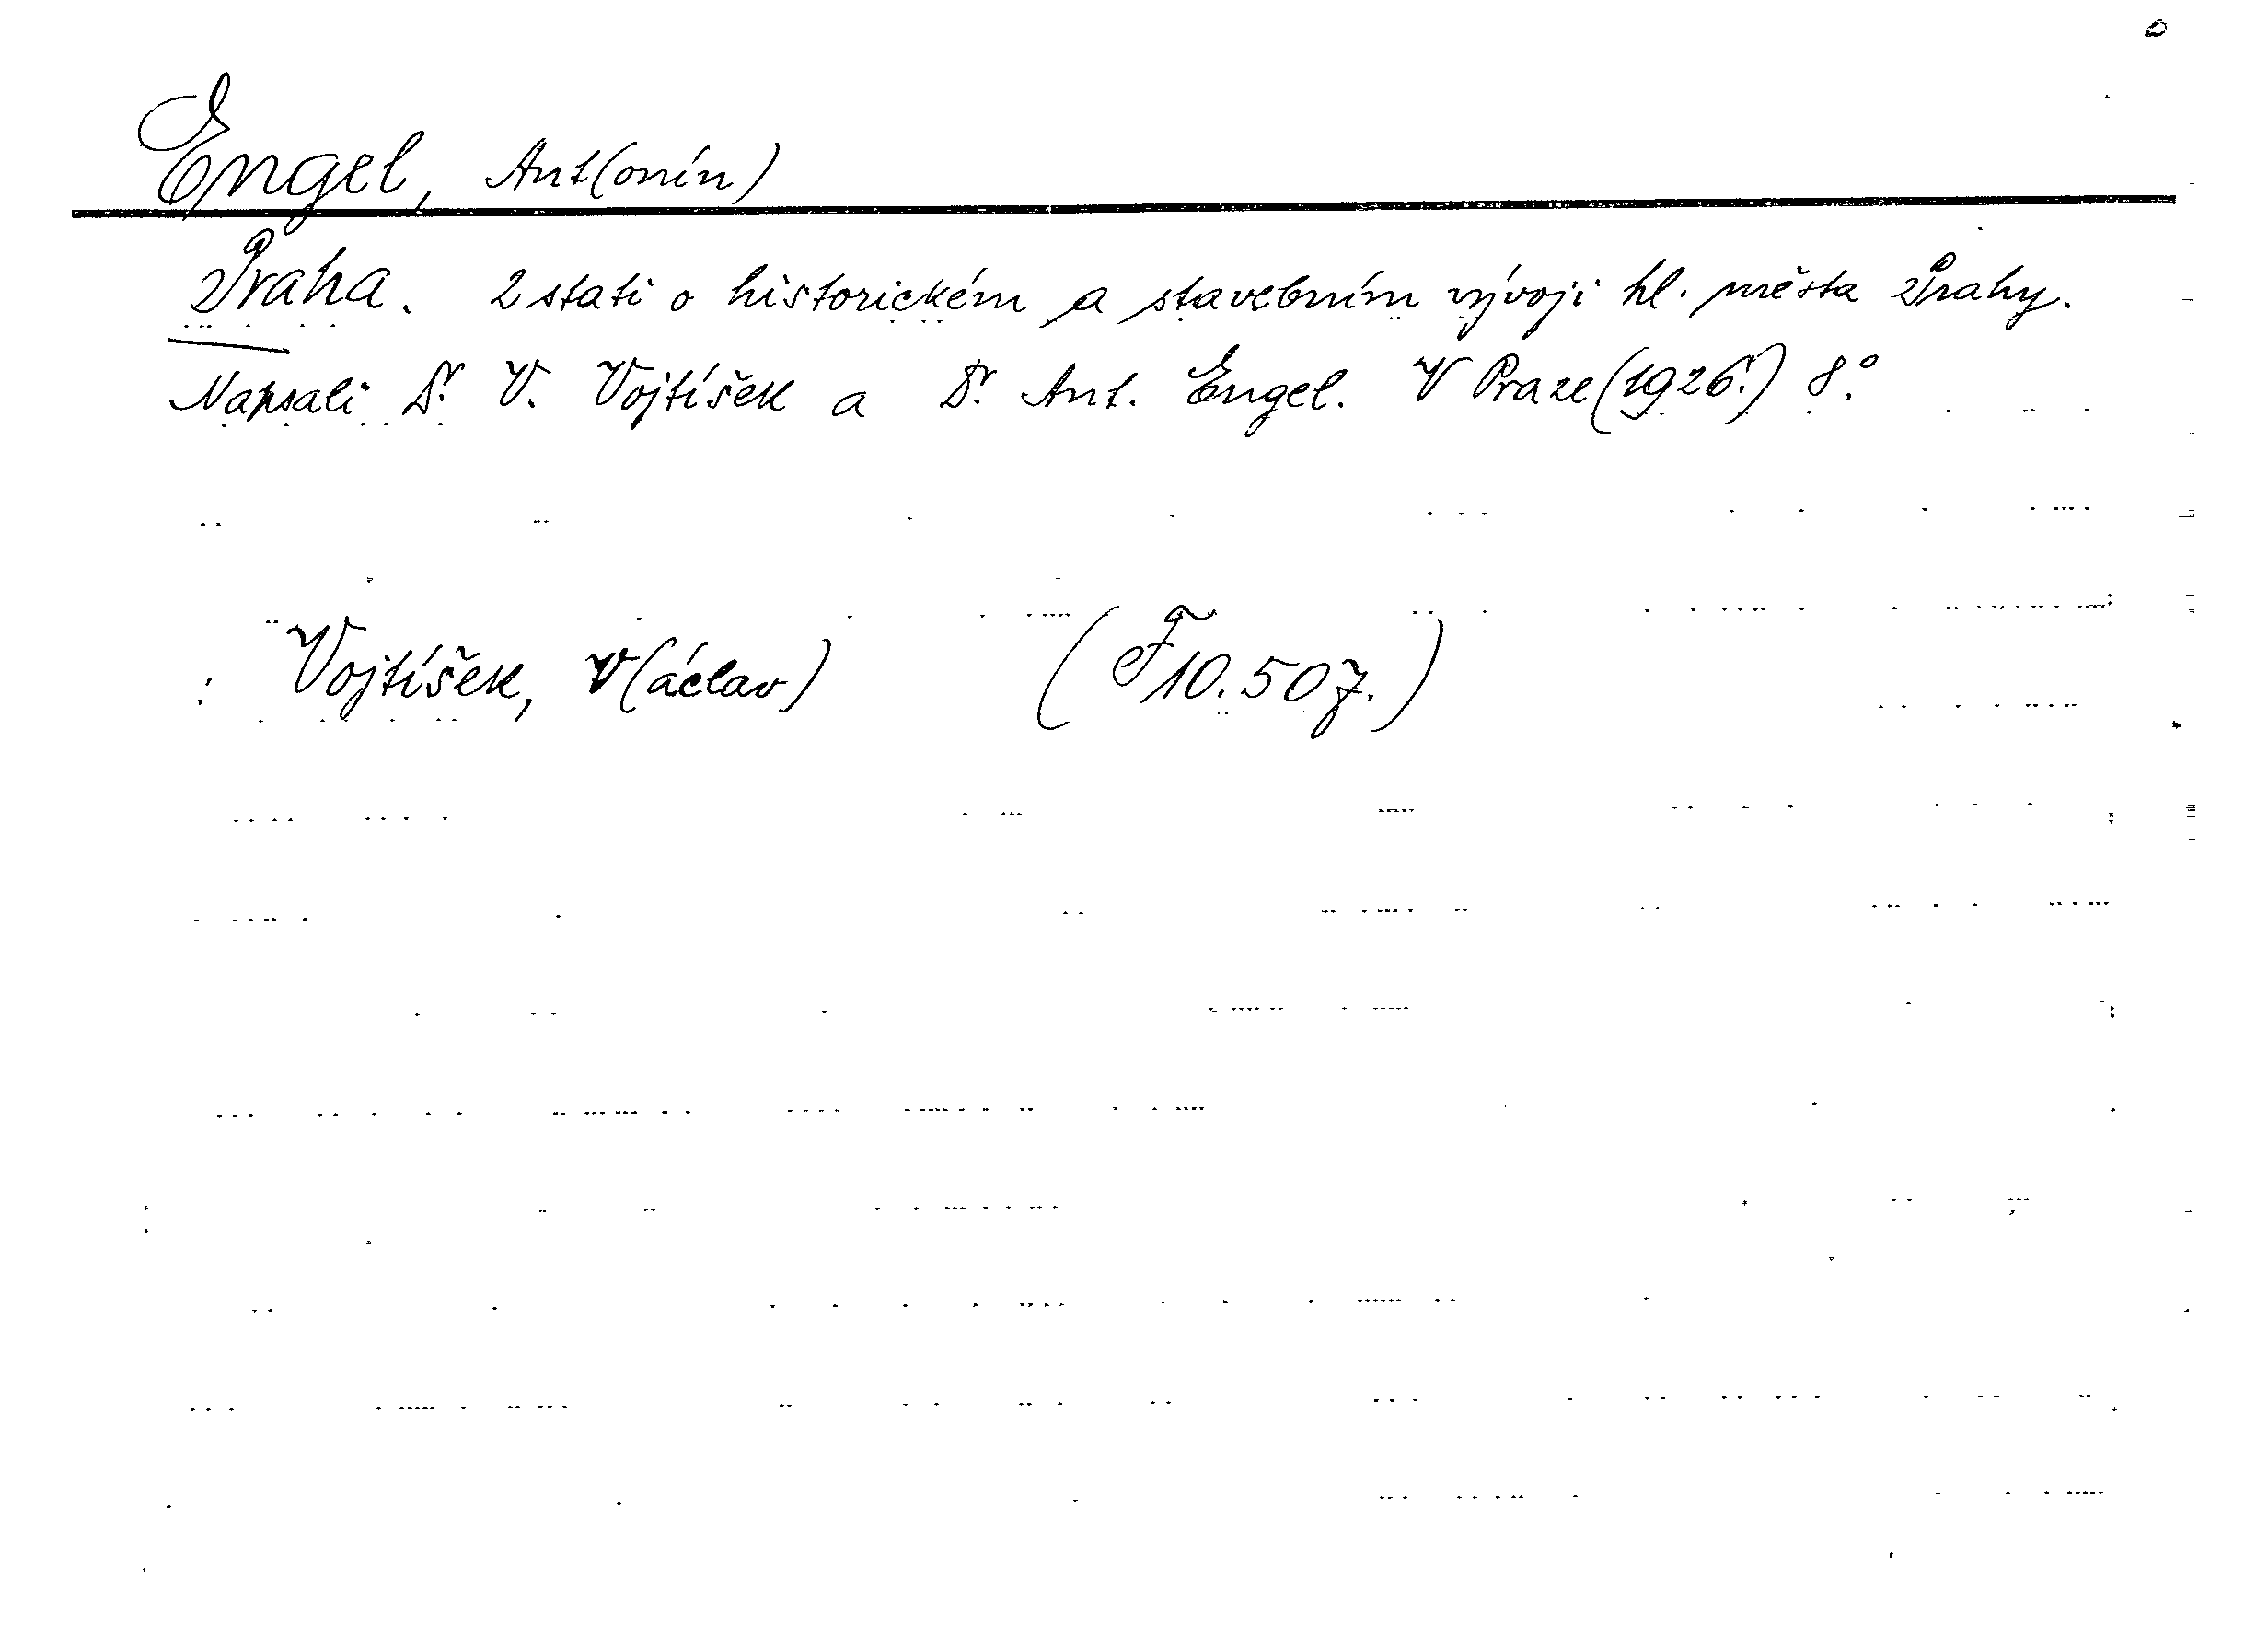 Engel, Ant(onín)
Praha. 2 stati o historickém a stavebním vývoji hl. města Prahy.
Napsali Dr. V. Vojtíšek a Dr. Ant. Engel. V Praze (1926.) 8.°
Vojtíšek, V(áclav) (F 10.507.)